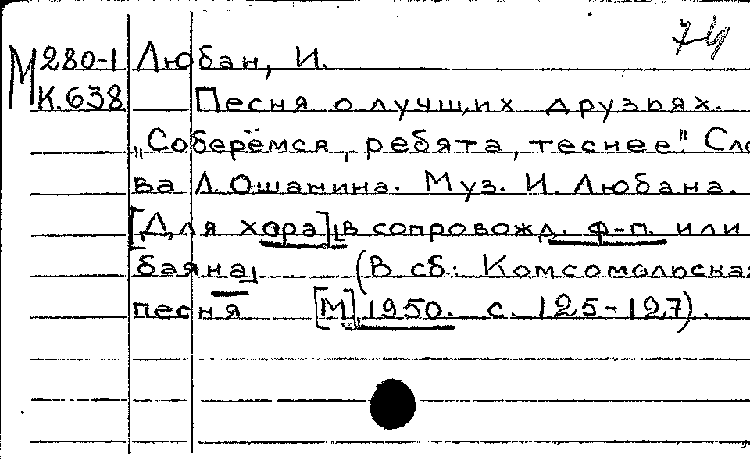 74
М 280-1 Любан, И.
К.638 Песня о лучших друзьях.
„Соберёмся, ребята, теснее." Сло
ва Л. Ошанина. Муз. И. Любана.
[Для хора] [в сопровожд. ф-п. или
баяна] (В сб: Комсомольская
песня [М], 1950. с. 125-127).